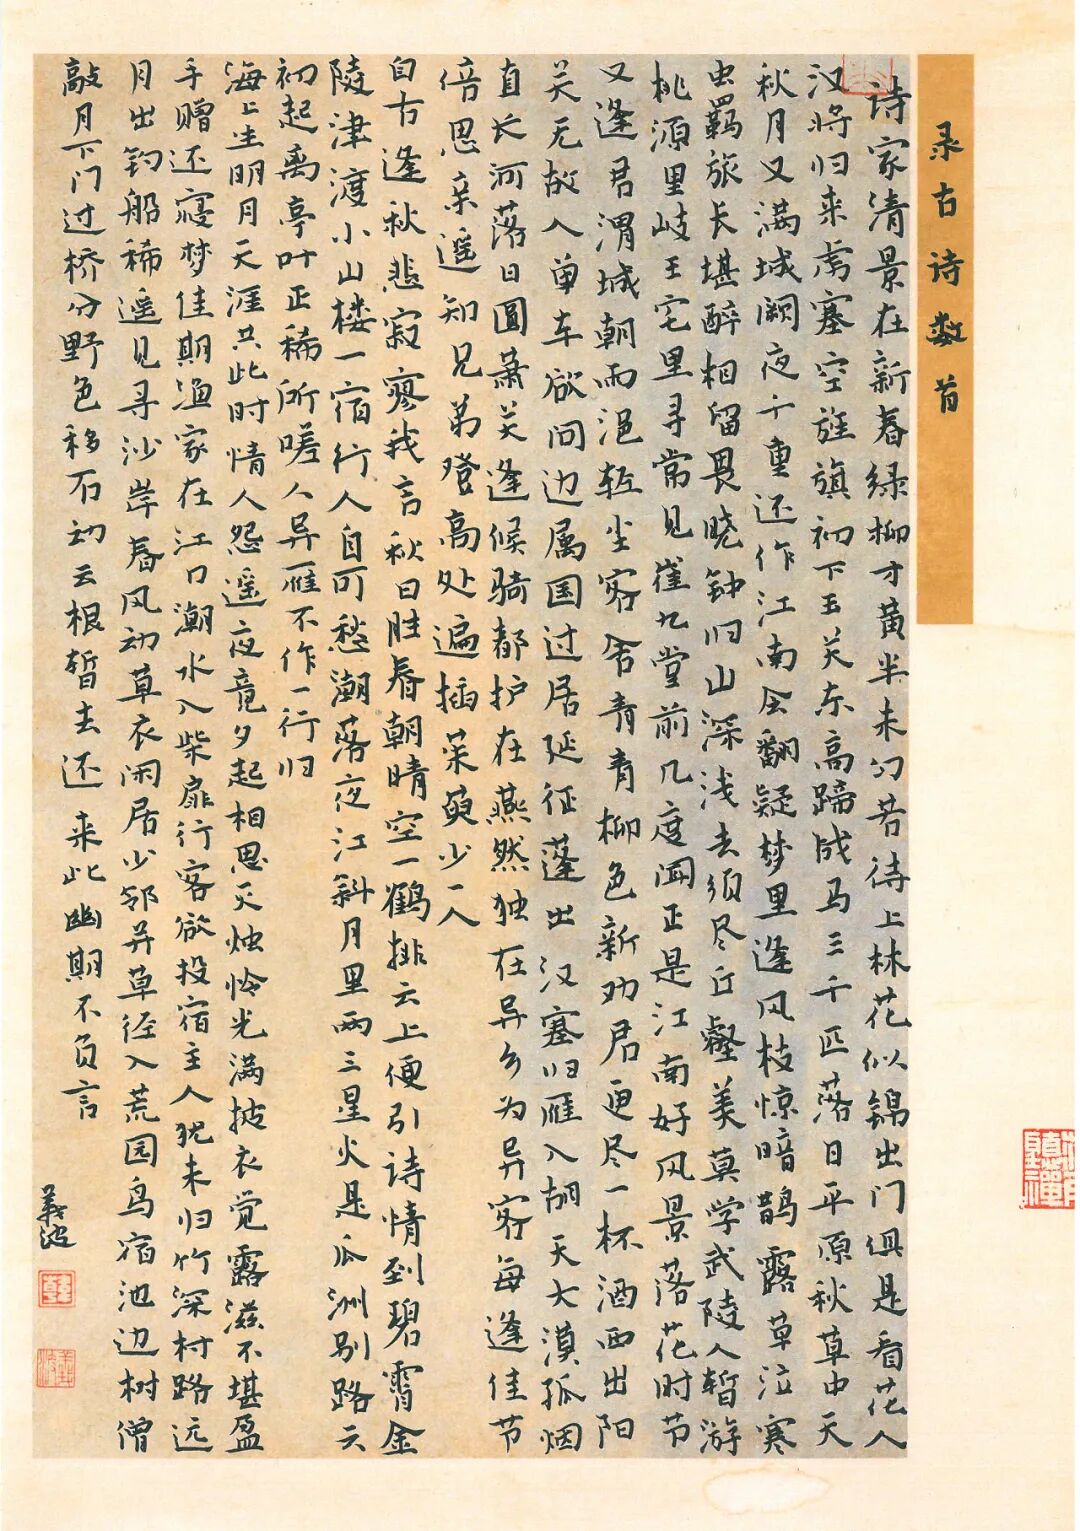 录古诗数首
诗家清景在新春绿柳才黄半未匀若待上林花似锦出门俱是看花人
汉将归来虏塞空旌旗初下玉关东高蹄战马三千匹落日平原秋草中天
秋月又满城阙夜千重还作江南会翻疑梦里逢风枝惊暗鹊露草泣寒
虫羁旅长堪醉相留畏晓钟归山深浅去须尽丘壑美莫学武陵人暂游
桃源里岐王宅里寻常见崔九堂前几度闻正是江南好风景落花时节
又逢君渭城朝雨浥轻尘客舍青青柳色新劝君更尽一杯酒西出阳
关无故人单车欲问边属国过居延征蓬出汉塞归雁入胡天大漠孤烟
直长河落日圆萧关逢候骑都护在燕然独在异乡为异客每逢佳节
倍思亲遥知兄弟登高处遍插茱萸少一人
自古逢秋悲寂寥我言秋日胜春朝晴空一鹤排云上便引诗情到碧霄金
陵津渡小山楼一宿行人自可愁潮落夜江斜月里两三星火是瓜洲别路云
初起离亭叶正稀所嗟人异雁不作一行归
海上生明月天涯共此时情人怨遥夜竟夕起相思灭烛怜光满披衣觉露滋不堪盈
手赠还寝梦佳期渔家在江口潮水入柴扉行客欲投宿主人犹未归竹深村路远
月出钓船稀遥见寻沙岸春风动草衣闲居少邻并草径入荒园鸟宿池边树僧
敲月下门过桥分野色移石动云根暂去还来此幽期不负言